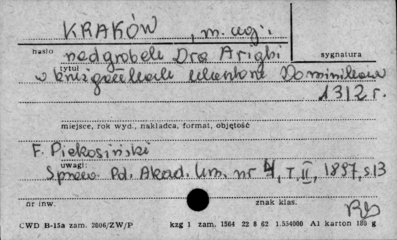 KRAKÓW, m. węg.:
hasło nadgrobek Dra Arigbi sygnatura
tytuł
w krużgankach klasztoru Dominikanów
1312 r.
miejsce, rok wyd., nakładca, format, objętość
F. Piekosiński
uwagi:
Spraw. Pd. Akad. Um. nr 4, T, II, 1897, s.13
nr inw. znak klas.
CWD B-15a zam. 2006/ZW/P kzg 1 zam. 1564 22 8 62 1.554000 A1 karton 180 g